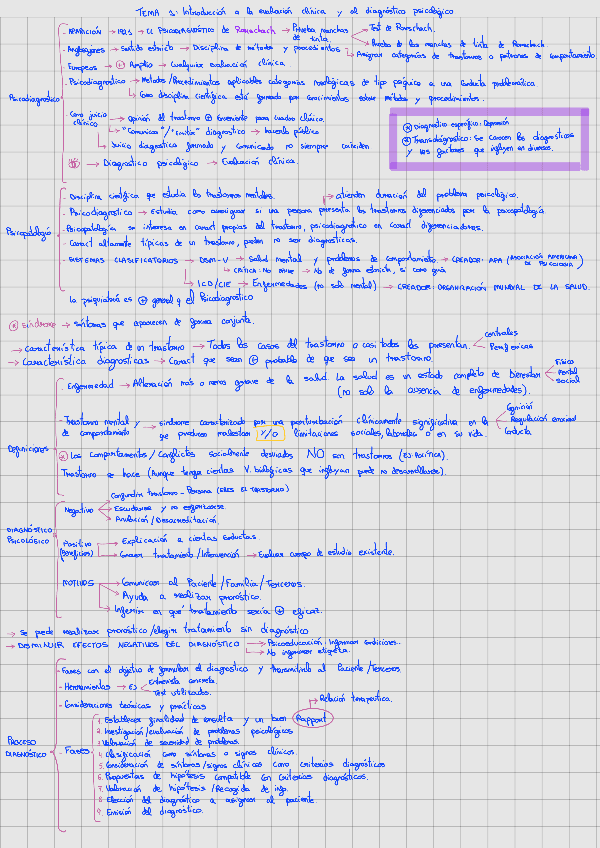 TEMA 1: Introducción a la evaluación clínica y el diagnóstico psicológico
Psicodiagnóstico
- APARICIÓN → 1921 → El PSICODIAGNÓSTICO DE Rorschach → Prueba manchas de tinta.
→ Test de Rorschach.
→ Prueba de las manchas de tinta de Rorschach.
- Anglosajones → Sentido estricto → Disciplina de métodos y procedimientos → Asignar categorías de trastornos o patrones de comportamiento
- Europeos → + Amplio → Cualquier evaluación clínica.
- Psicodiagnóstico → Métodos/Procedimientos aplicables categorías nosológicas de tipo psíquico a una conducta problemática.
→ Como disciplina científica está formado por conocimientos sobre métodos y procedimientos.
- Como juicio clínico
→ Opinión del trastorno + conveniente para cuadro clínico.
→ "Comunicar"/"Emitir" diagnóstico → hacerlo público
→ Juicio diagnóstico formado y comunicado no siempre coinciden
→ Diagnóstico psicológico → Evaluación clínica.
Diagnóstico específico: Depresión
Transdiagnóstico: Se conocen los diagnósticos y los factores que influyen en diversos.
Psicopatología
- Disciplina científica que estudia los trastornos mentales.
→ atienden duración del problema psicológico.
- Psicodiagnóstico → Estudia como averiguar si una persona presenta los trastornos diferenciados por la psicopatología
- Psicopatología se interesa en caract propias del trastorno, psicodiagnóstico en caract diferenciadoras.
- Caract altamente típicas de un trastorno, pueden no ser diagnósticas.
- SISTEMAS CLASIFICATORIOS → DSM-V → Salud mental y problemas de comportamiento → CREADOR: APA (ASOCIACIÓN AMERICANA DE PSICOLOGÍA)
→ CRÍTICA: No sirve → No de forma estricta, si como guía
→ ICD/CIE → Enfermedades (no sólo mental) → CREADOR: ORGANIZACIÓN MUNDIAL DE LA SALUD.
La psiquiatría es + general q el Psicodiagnóstico
Síndrome → síntomas que aparecen de forma conjunta.
→ Característica típica de un trastorno → Todos los casos del trastorno o casi todos las presentan.
→ Centrales
→ Periféricas
→ Características diagnósticas → Caract que sean + probable de que sea un trastorno.
Definiciones
Enfermedad → Alteración más o menos grave de la salud. La salud es un estado completo de bienestar (no sólo la ausencia de enfermedades).
Físico
Mental
Social
- Trastorno mental y de comportamiento → síndrome caracterizado por una perturbación clínicamente significativa en la
Cognición
Regulación emocional
Conducta
que producen malestar y/o limitaciones sociales, laborales o en su vida.
Los comportamientos/Conflictos socialmente desviados NO son trastornos (EJ: POLÍTICA).
Trastorno se hace (Aunque tenga ciertas V. biológicas que influyan puede no desarrollarse).
DIAGNÓSTICO PSICOLÓGICO
Negativo
Confundir trastorno - Persona (ERES EL TRASTORNO)
Escudarse y no esforzarse.
Anulación/Desacreditación.
Positivo (Beneficios)
→ Explicación a ciertas conductas
→ Conocer tratamiento/Intervención → Evaluar cuerpo de estudio existente.
MOTIVOS
→ Comunicar al Paciente/Familia/Terceros.
→ Ayuda a realizar pronóstico.
→ Inferir en qué tratamiento sería + eficaz.
→ Se puede realizar pronóstico/elegir tratamiento sin diagnóstico
→ DISMINUIR EFECTOS NEGATIVOS DEL DIAGNÓSTICO
→ Psicoeducación: Informar
→ No informar etiqueta.
PROCESO DIAGNÓSTICO
- Fases con el objetivo de formular el diagnóstico y transmitirlo al Paciente/Terceros.
- Herramientas → EJ
Entrevista concreta.
Test utilizados.
- Consideraciones teóricas y prácticas
→ Relación terapéutica.
- FASES
1. Establecer finalidad de consulta y un buen Rapport
2. Investigación/evaluación de problemas psicológicos
3. Valoración de severidad de problemas.
4. Clasificación como síntomas o signos clínicos.
5. Consideración de síntomas/signos clínicos como criterios diagnósticos
6. Propuestas de hipótesis compatible con criterios diagnósticos.
7. Valoración de hipótesis/Recogida de info.
8. Elección del diagnóstico a asignar al paciente.
9. Emisión del diagnóstico.